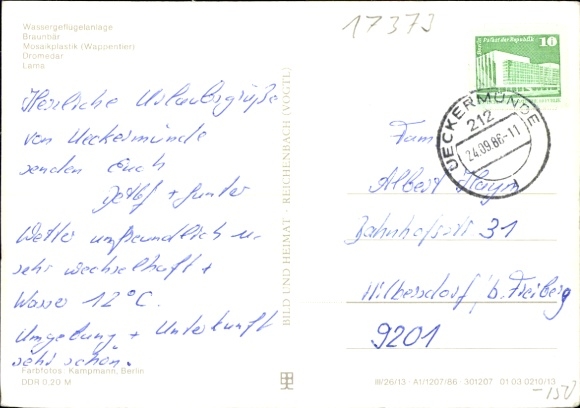 Wassergeflügelanlage
Braunbär
Mosaikplastik (Wappentier)
Dromedar
Lama
17373
Herzliche Urlaubsgrüße
von Ueckermünde
senden Euch
Detlef + Gunter
Wetter unfreundlich u.
sehr wechselhaft +
Wasser 12°C.
Umgebung + Unterkunft
sehr schön.
Farbfotos: Kampmann, Berlin
DDR 0,20 M
BILD UND HEIMAT · REICHENBACH (VOGTL)
Berlin Palast der Republik
10
UECKERMÜNDE
212
24.09.86-11
Fam
Albert Haym
Bahnhofsstr 31
Hilbersdorf, b. Freiberg
9201
III/26/13 · A1/1207/86 · 301207 01 03 0210/13
-150